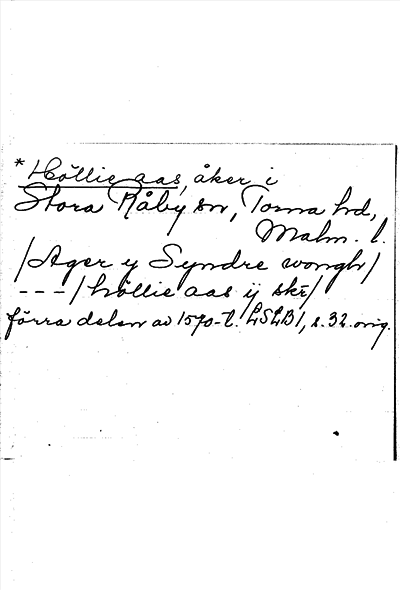 * Höllie aas, åker i
Stora Råby sn, Torna hd,
Malm. l.
/Ager y Syndre wongh/
---/höllie aas ij skr/
förra delen av 1570-t. LSLB1, s. 32. orig.